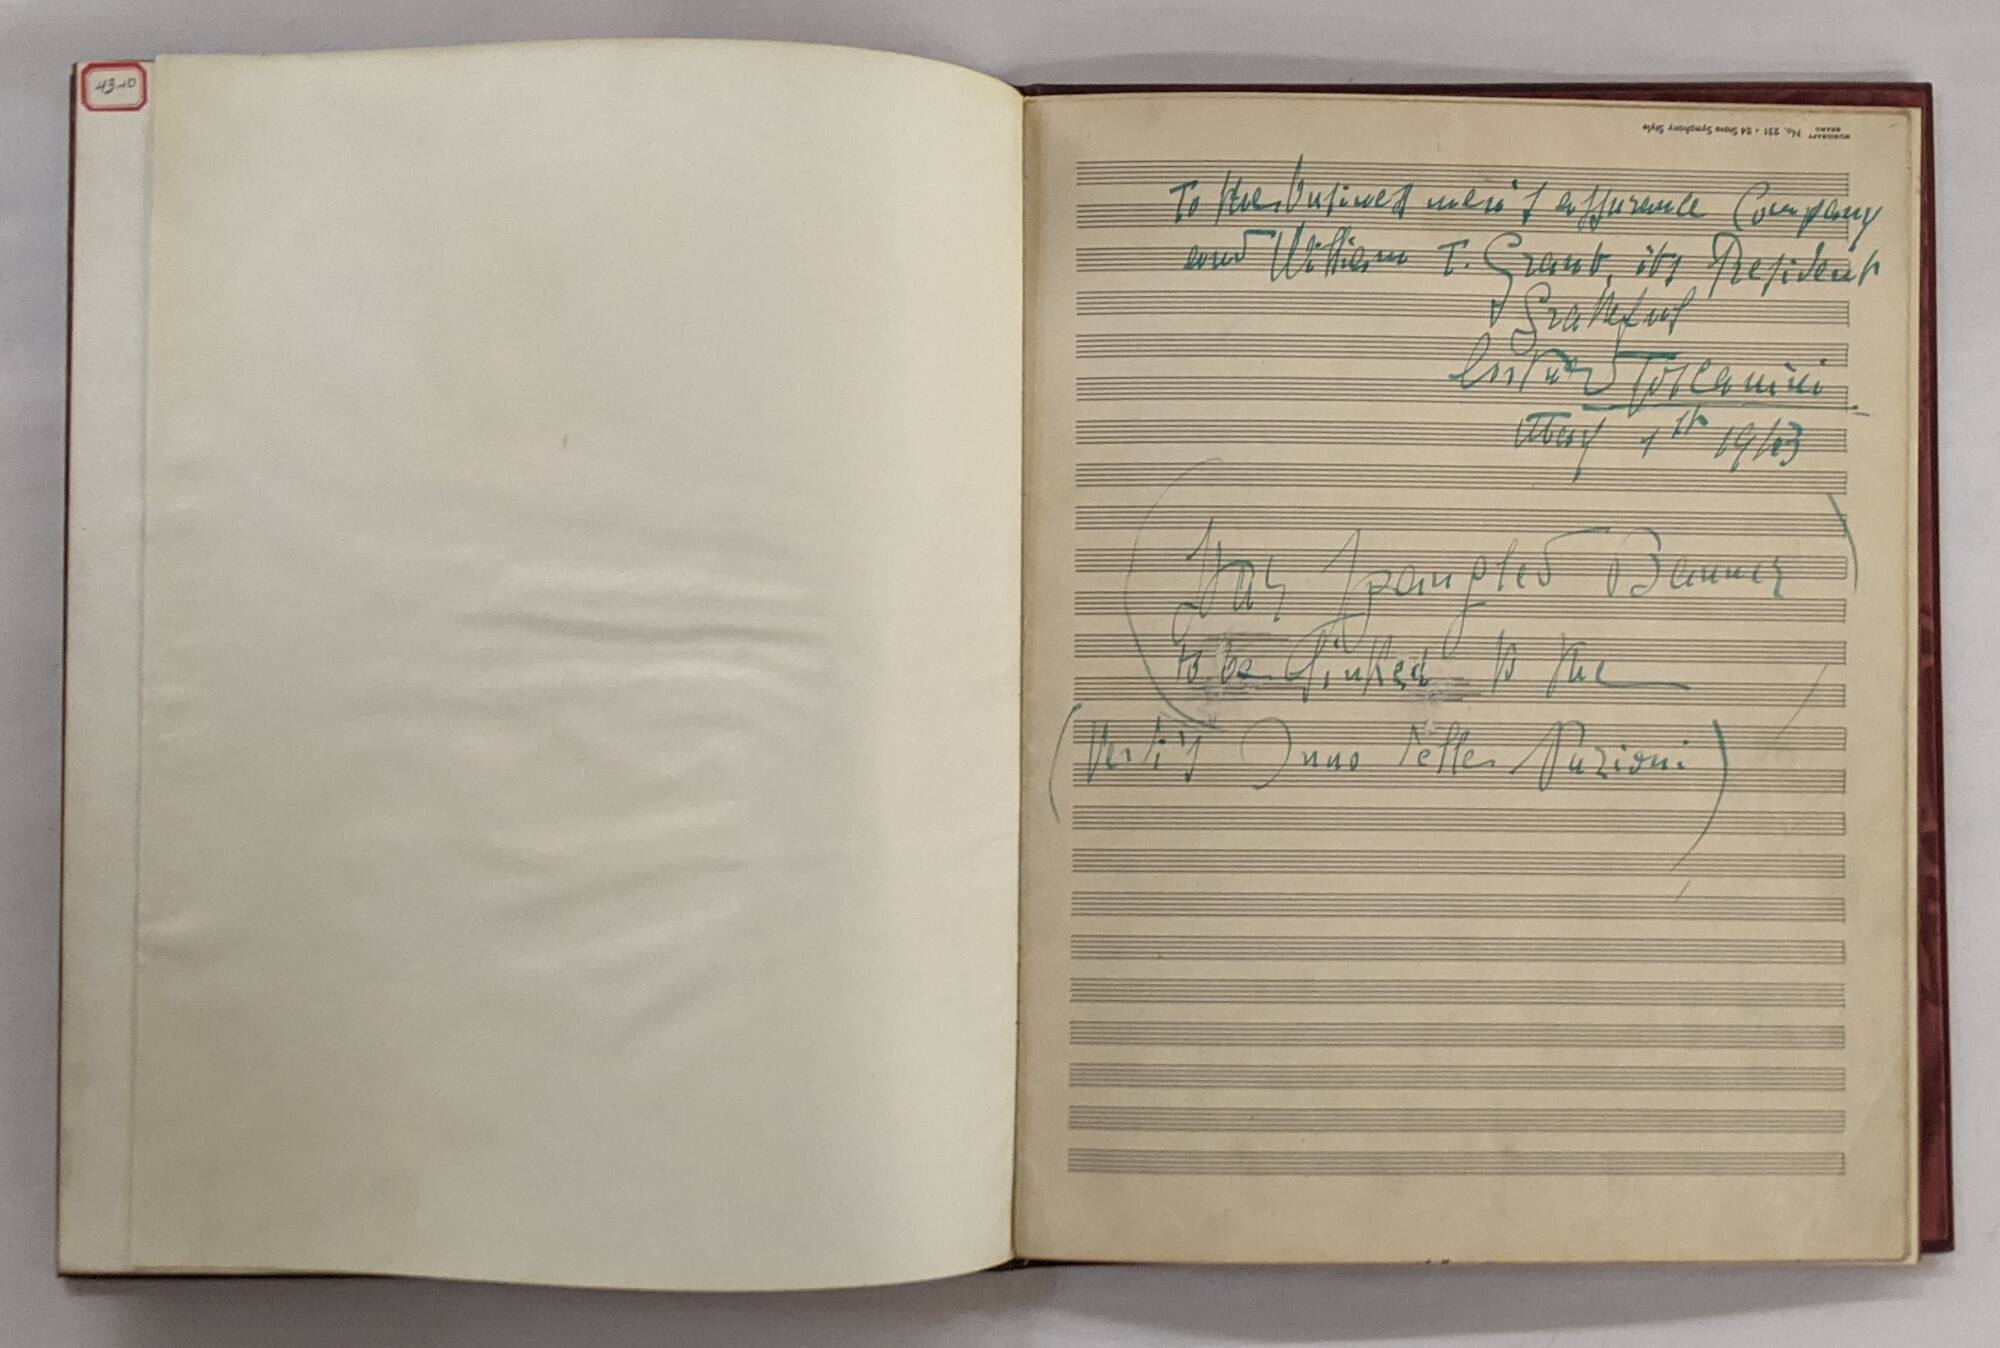 43-10
MUSICRAFT BRAND No. 231 • 24 Stave Symphony Style
To the business men's assurance Company
and William T. Grant, its President
Grateful
Arturo Toscanini
May 1st 1943
Star Spangled Banner
to be linked to the
(Verdi's Inno delle Nazioni)